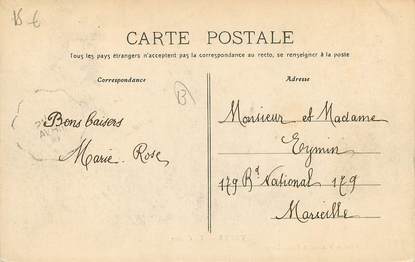 15 €
CARTE POSTALE
Tous les pays étrangers n'acceptent pas la correspondance au recto, se renseigner à la poste
Correspondance
Adresse
B
Bons baisers
Marie-Rose
Monsieur et Madame
Eymin
179 Bd National 179
Marseille